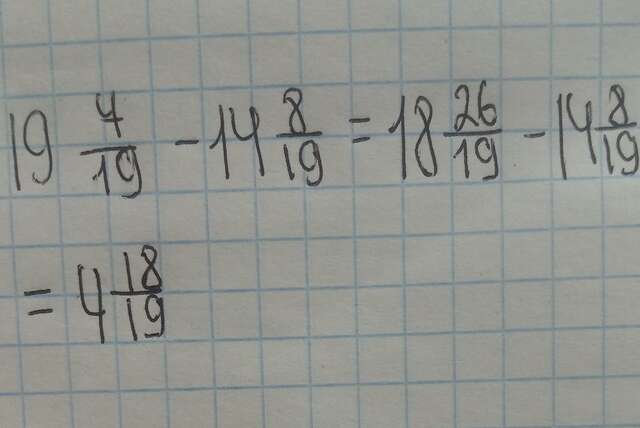 19 7/19 - 14 8/19 = 18 26/19 - 14 8/19
= 4 18/19